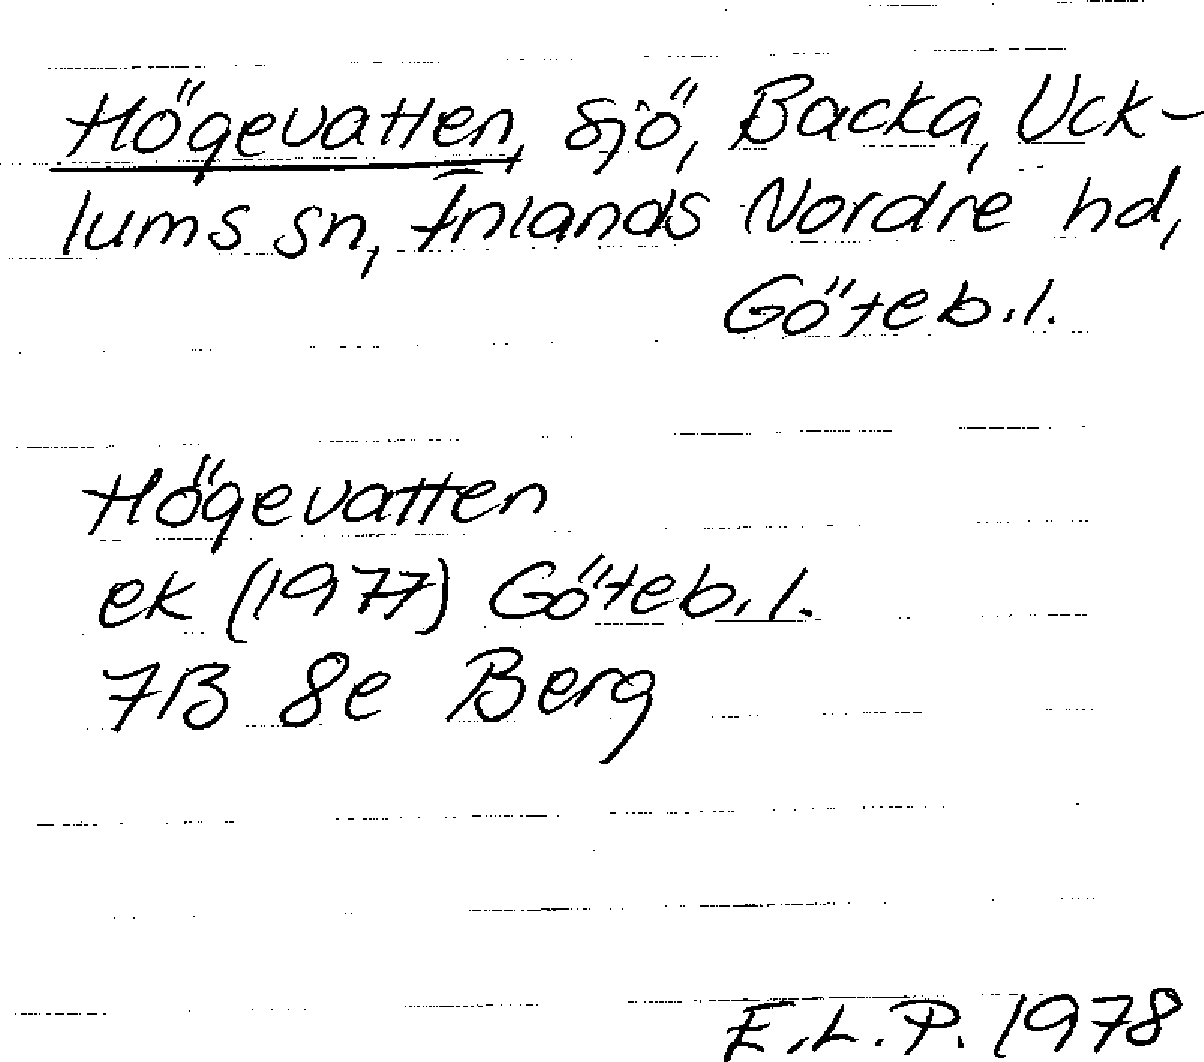 Högevatten, sjö, Backa, Uck-
lums sn, Inlands Nordre hd,
Göteb.l.
Högevatten
ek (1977) Göteb.l.
7B 8e Berg
E.L.P. 1978